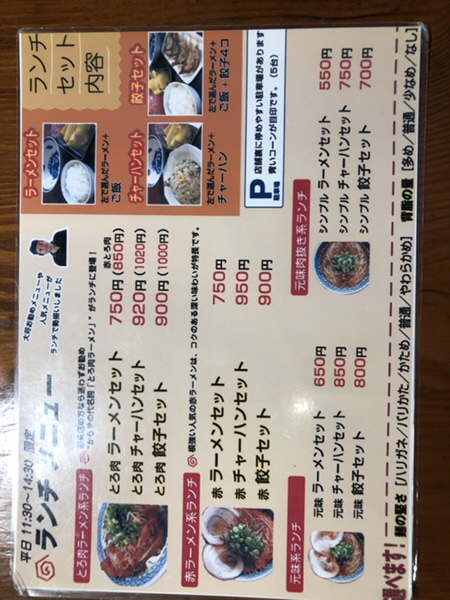 平日 11:30〜14:30 限定
ランチメニュー
大将お勧めメニューや
人気メニューが
ランチで勢揃いしました
ランチ
セット
内容
ラーメンセット
左で選んだラーメン+
ご飯
餃子セット
左で選んだラーメン+
ご飯+餃子4コ
チャーハンセット
左で選んだラーメン+
チャーハン
P
駐車場
店舗裏に停めやすい駐車場があります
青いコーンが目印です。(5台)
とろ肉ラーメン系ランチ
初来店の方なら迷わずお勧め
の代名詞「とろ肉ラーメン」がランチに登場!
赤とろ肉
とろ肉 ラーメンセット 750円(850円)
とろ肉 チャーハンセット 920円(1020円)
とろ肉 餃子セット 900円(1000円)
赤ラーメン系ランチ
根強い人気の赤ラーメンは、コクのある深い味わいが特長です。
赤 ラーメンセット 750円
赤 チャーハンセット 950円
赤 餃子セット 900円
元味系ランチ
元味 ラーメンセット 650円
元味 チャーハンセット 850円
元味 餃子セット 800円
元味肉抜き系ランチ
シンプル ラーメンセット 550円
シンプル チャーハンセット 750円
シンプル 餃子セット 700円
選べます!
麺の堅さ [ハリガネ/バリかた/かため/普通/やわらかめ] 背脂の量 [多め/普通/少なめ/なし]